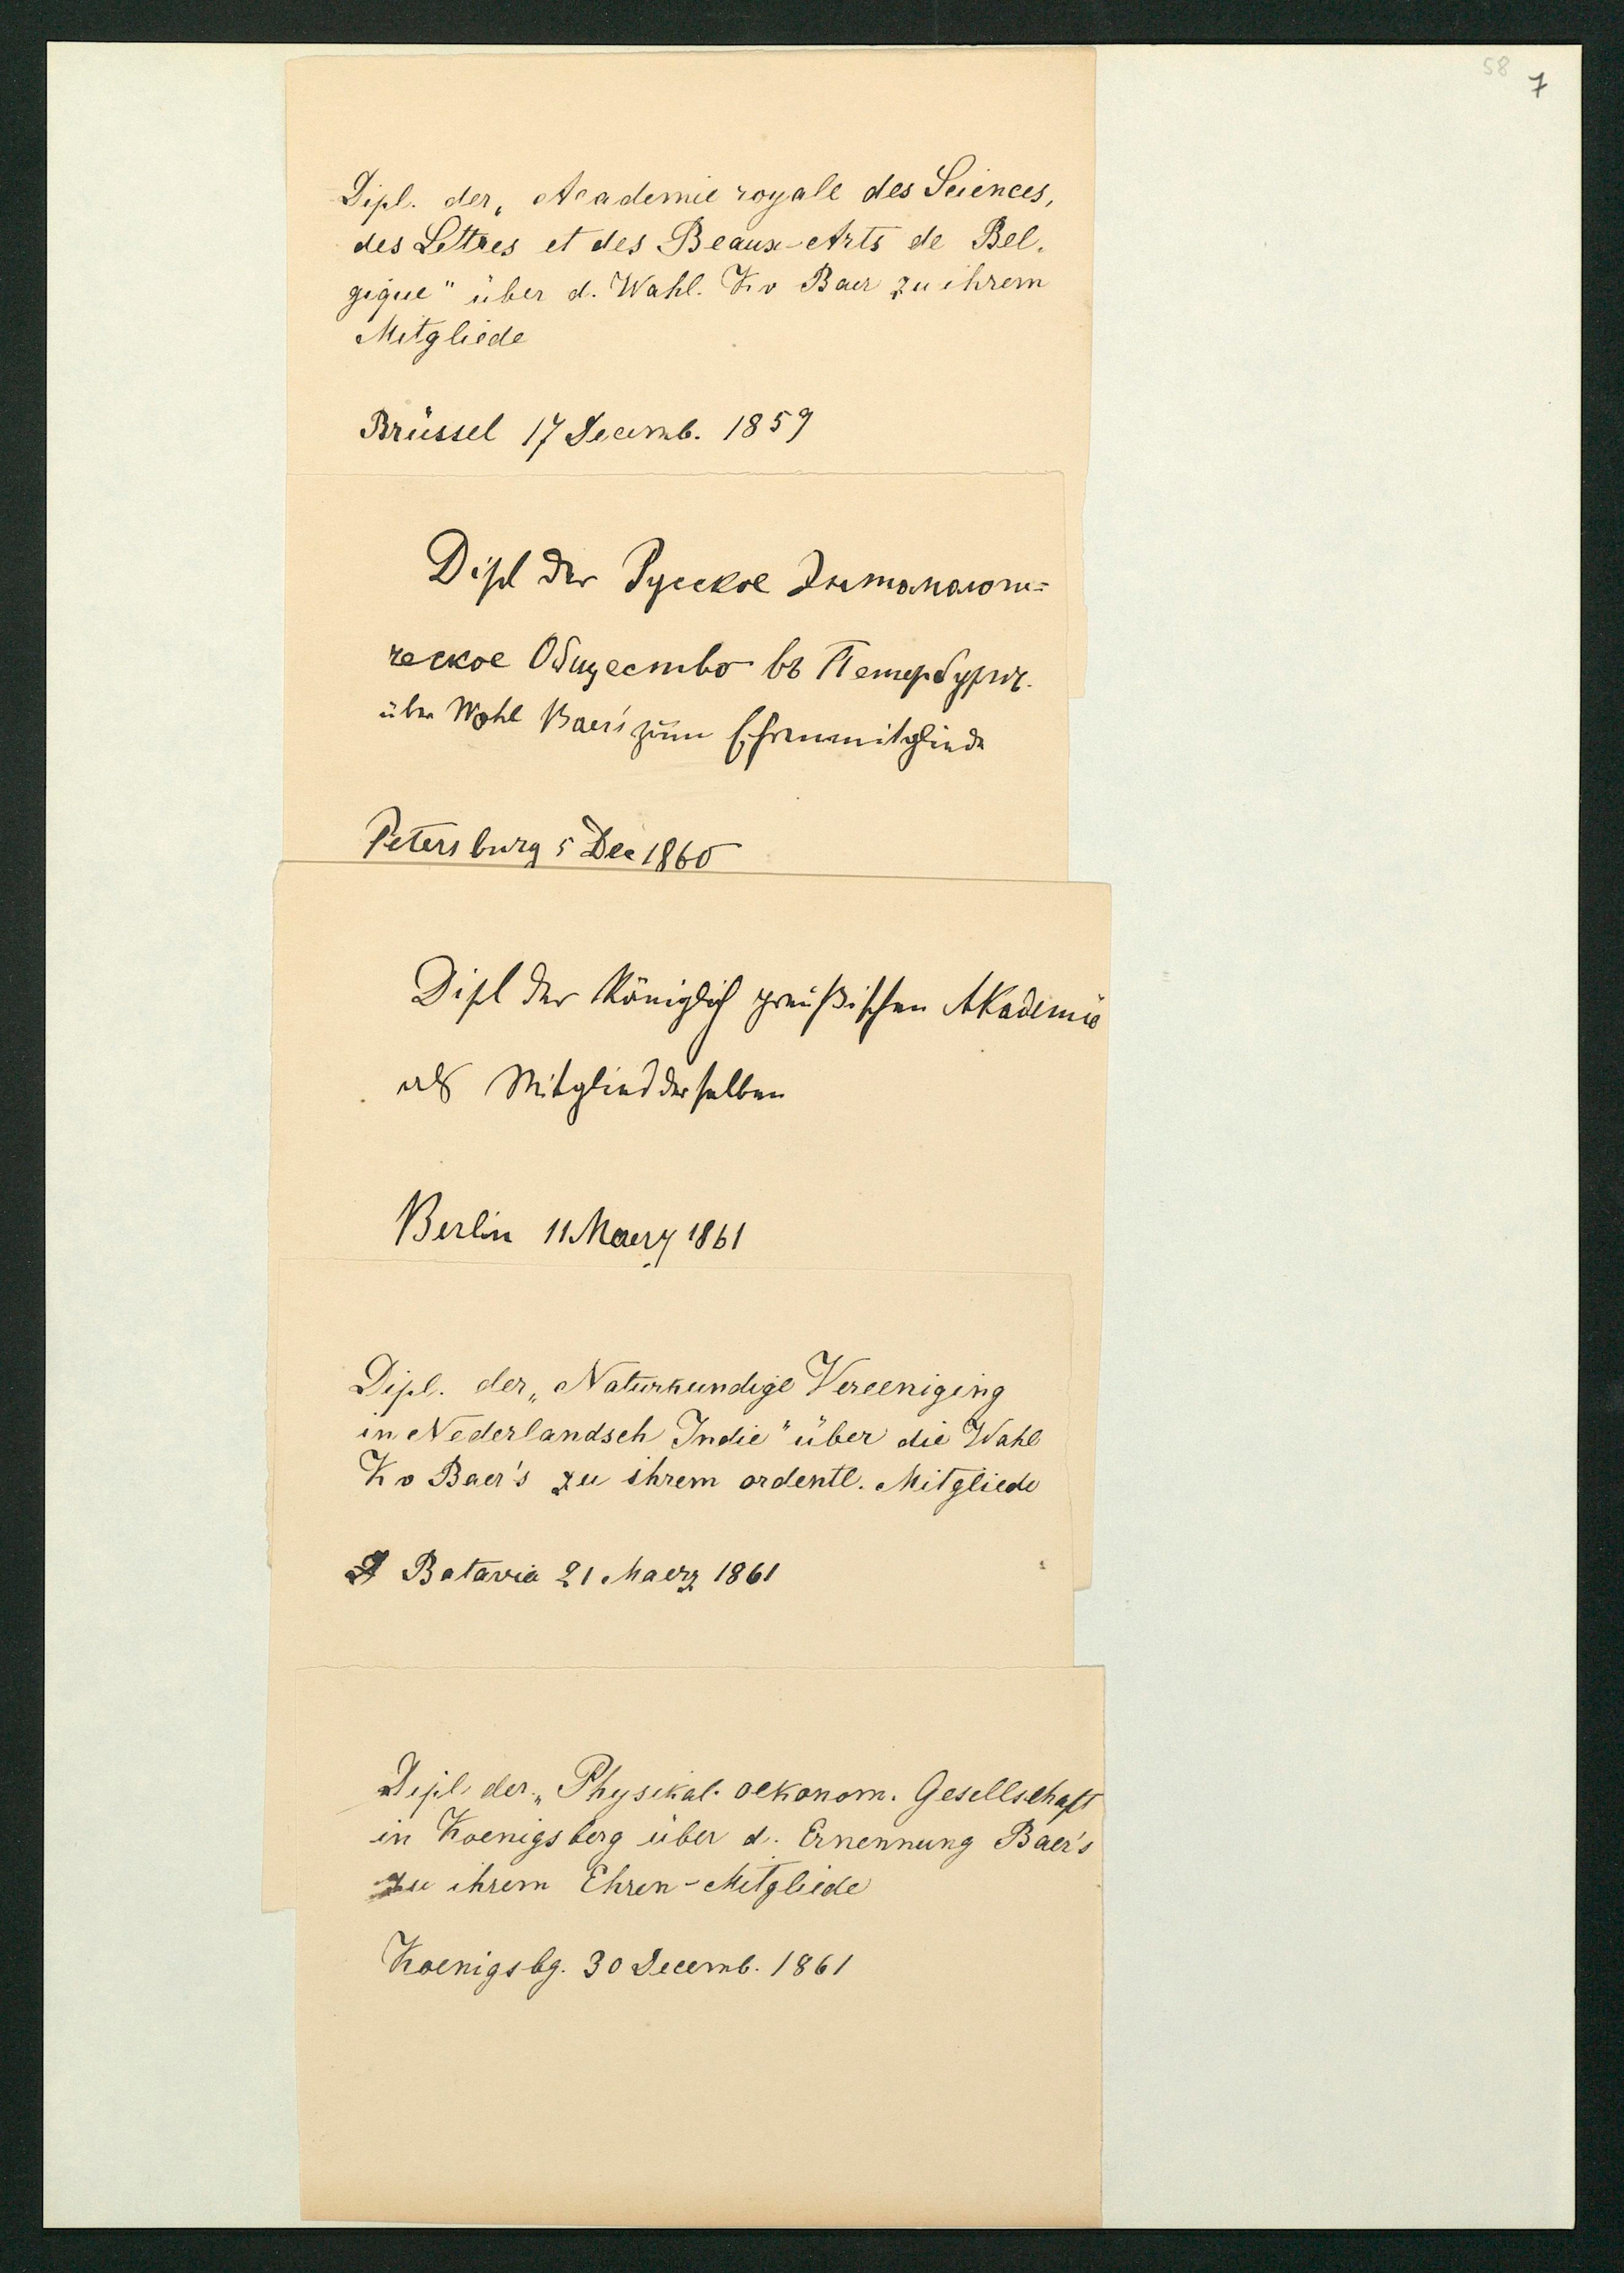 58
7
Dipl. der „Academie royale des Sciences,
des Lettres et des Beaux-Arts de Bel-
gique" über d. Wahl. K v Baer zu ihrem
Mitgliede
Brüssel 17 Decemb. 1859
Dipl der Русское Энтомологи=
ческое Общество въ Петербургѣ.
über Wahl Baer's zum Ehrenmitgliede
Petersburg 5 Dec 1860
Dipl der Königlich preußischen Akademie
als Mitglied derselben
Berlin 11 Maerz 1861
Dipl. der „Naturkundige Vereeniging
in Nederlandsch Indie" über die Wahl
K v Baer's zu ihrem ordentl. Mitgliede
Batavia 21 Maerz 1861
Dipl der „Physikal. oekonom. Gesellschaft
in Koenigsberg über d. Ernennung Baer's
zu ihrem Ehren-Mitgliede
Koenigsbg. 30 Decemb. 1861